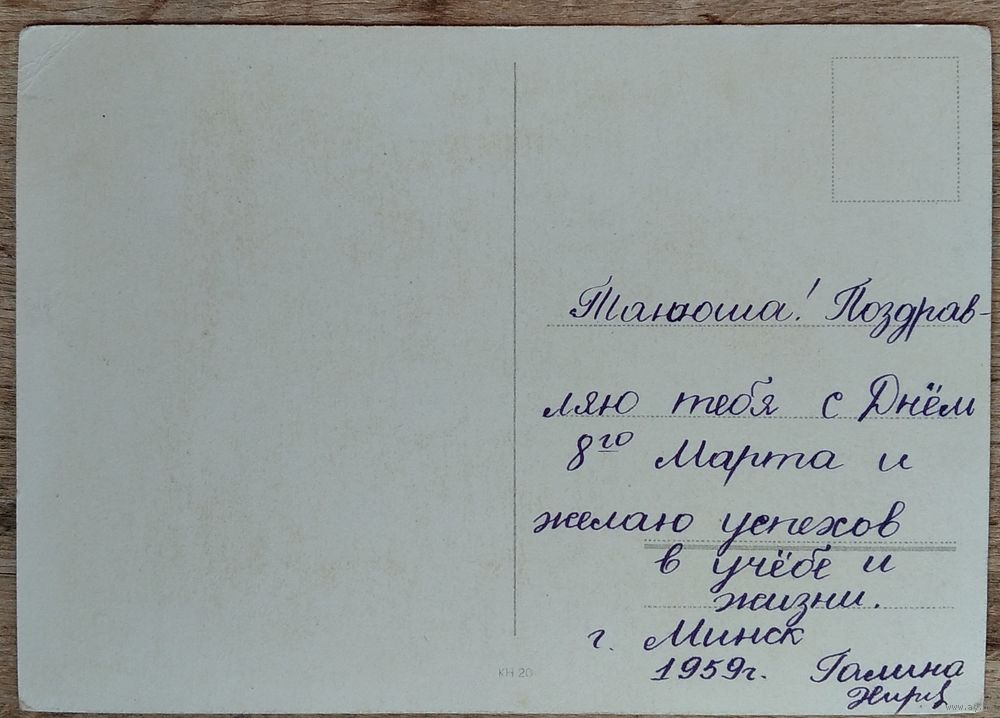 Танюша! Поздрав-
ляю тебя с Днём
8го Марта и
желаю успехов
в учёбе и
жизни.
г. Минск
1959г. Галина
КН 20